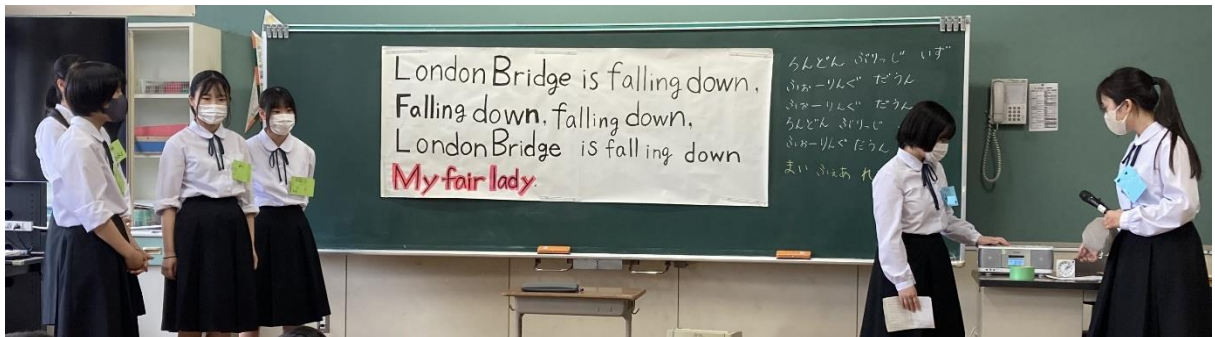 London Bridge is falling down,
Falling down, falling down,
London Bridge is falling down
My fair lady.
らんどん ぶりっじ いず
ふぉーりんぐ だうん
ふぉーりんぐ だうん
らんどん ぶりっじ
ふぉーりんぐ だうん
まい ふぇあ れ